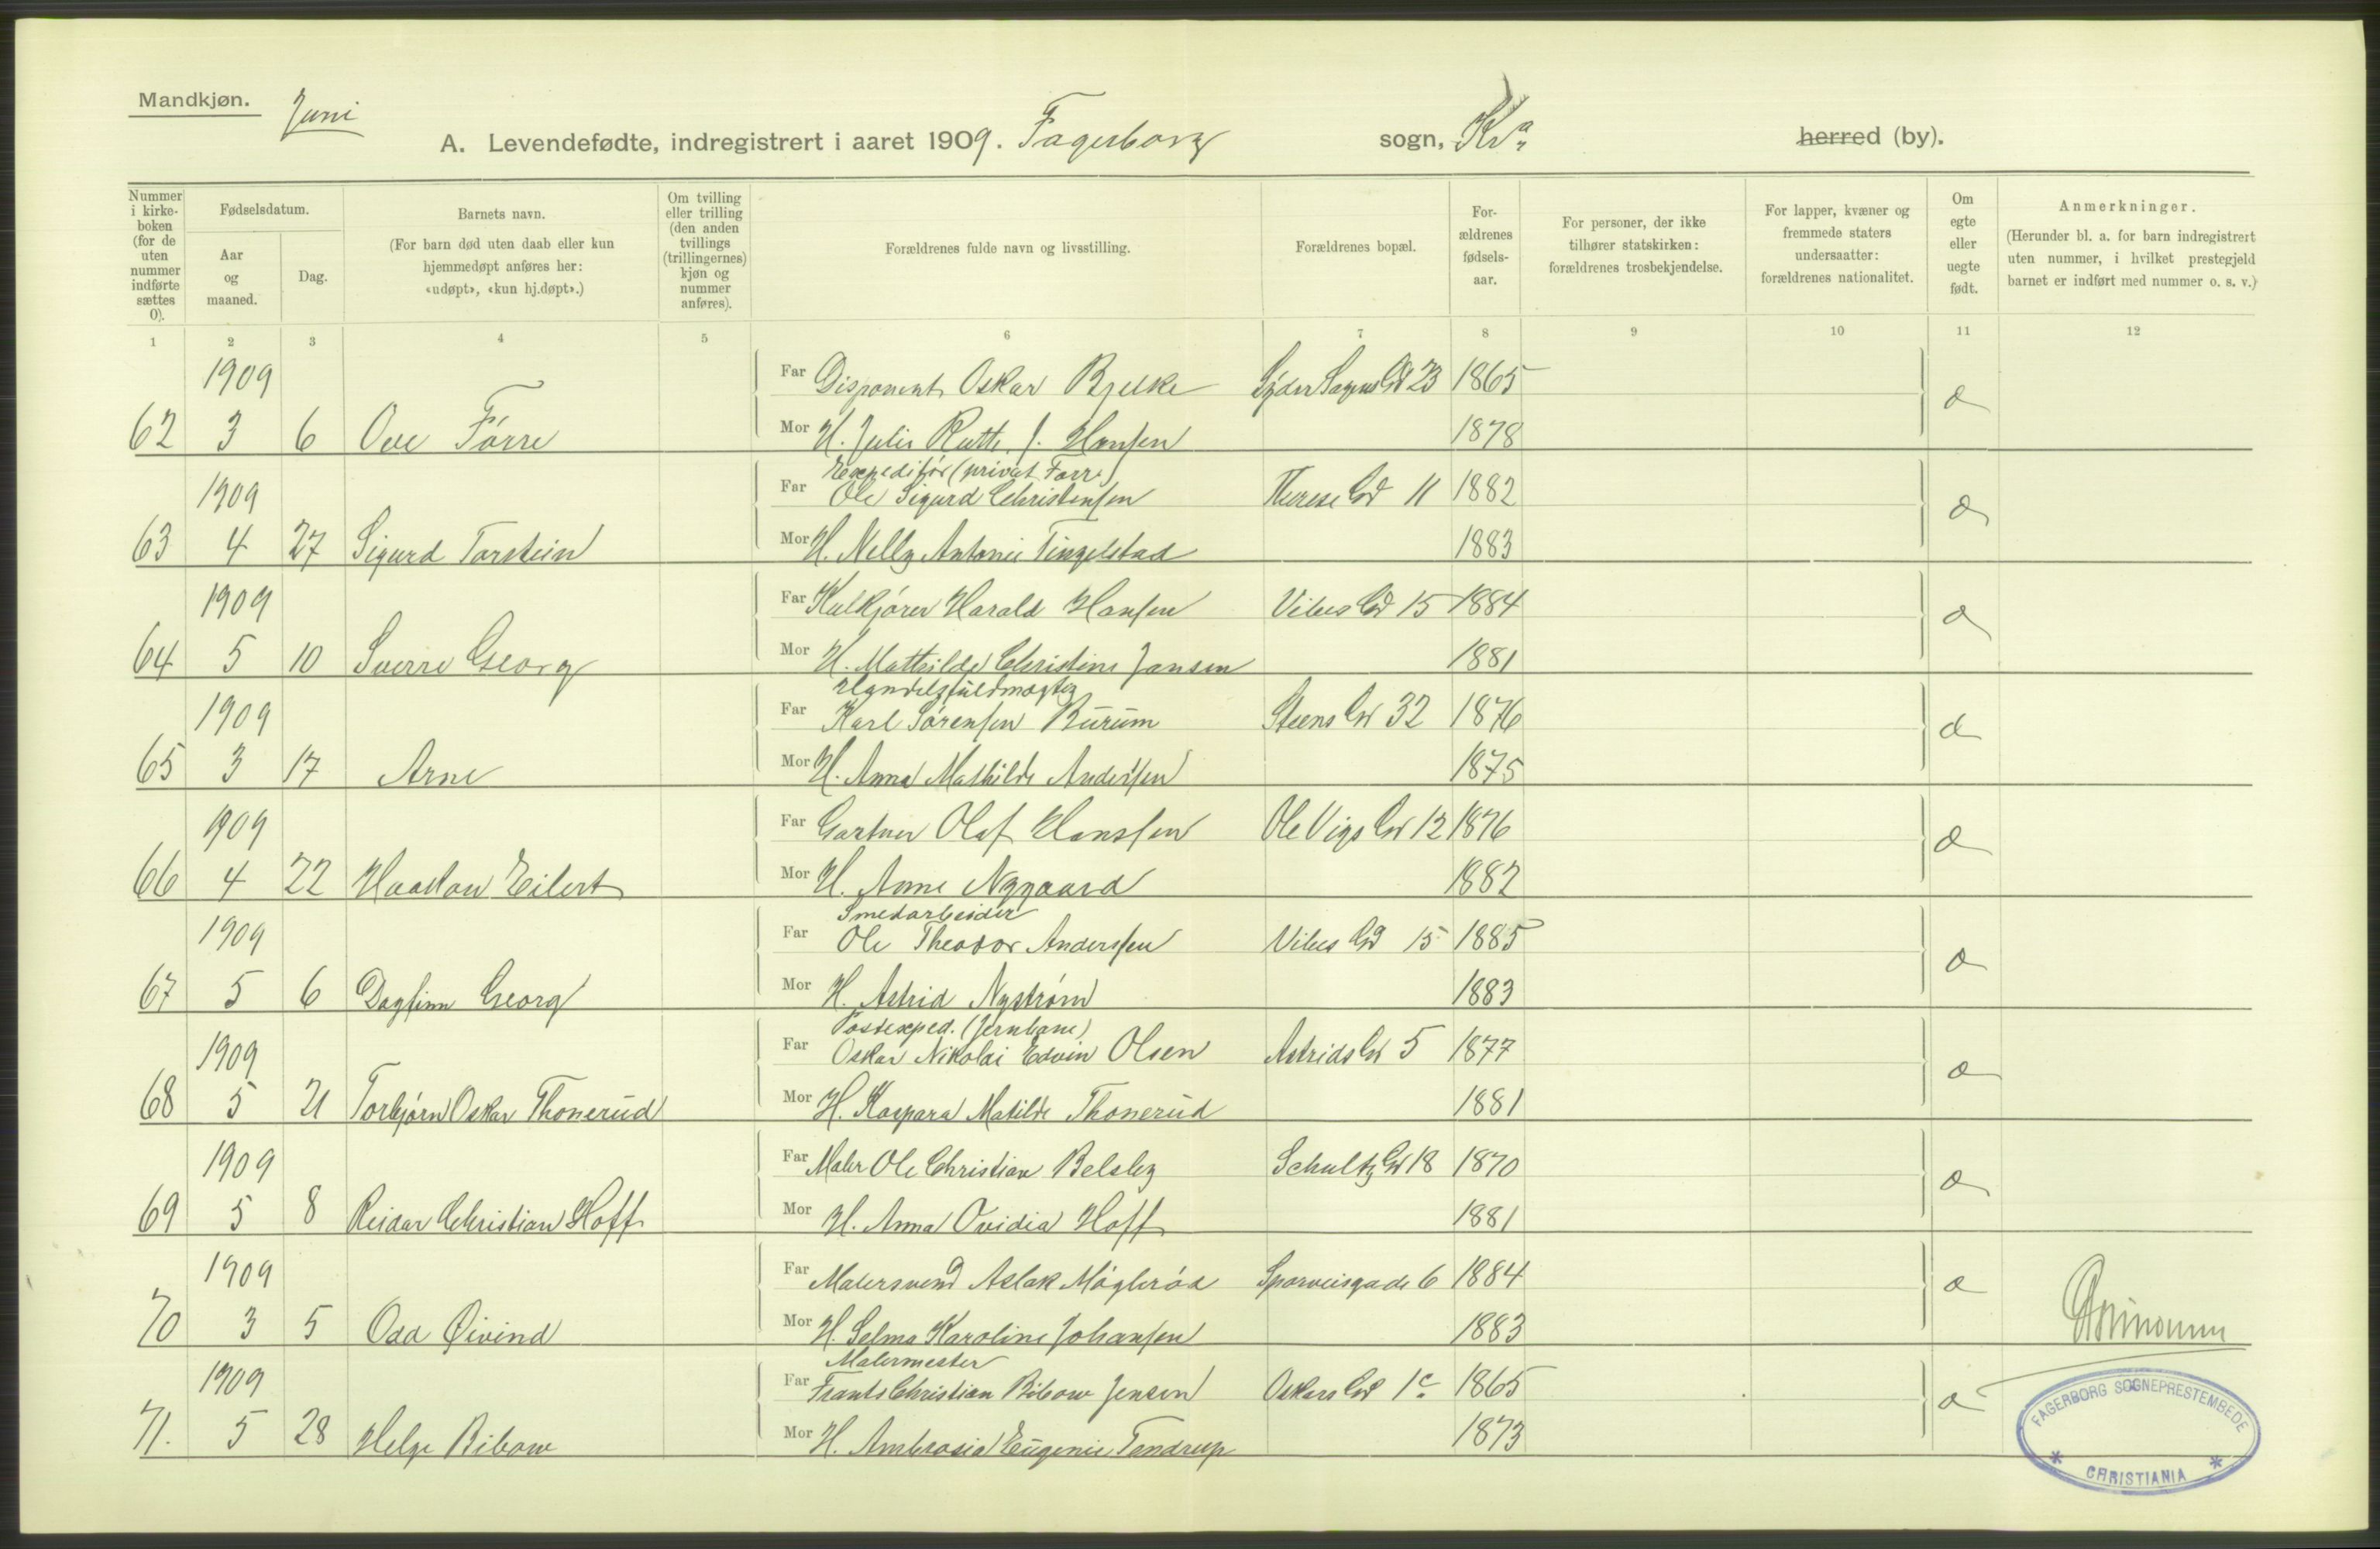 Mandkjøn.
Juni
A. Levendefødte, indregistrert i aaret 1909. Fagerborg sogn, Kr.a herred (by).
Nummer i kirkeboken (for de uten nummer indførte sættes 0).
Fødselsdatum.
Aar og maaned.
Dag.
Barnets navn.
(For barn død uten daab eller kun hjemmedøpt anføres her: «udøpt», «kun hj.døpt».)
Om tvilling eller trilling (den anden tvillings (trillingernes) kjøn og nummer anføres).
Forældrenes fulde navn og livsstilling.
Forældrenes bopæl.
For-ældrenes fødsels-aar.
For personer, der ikke tilhører statskirken: forældrenes trosbekjendelse.
For lapper, kvæner og fremmede staters undersaatter: forældrenes nationalitet.
Om egte eller uegte født.
Anmerkninger.
(Herunder bl. a. for barn indregistrert uten nummer, i hvilket prestegjeld barnet er indført med nummer o. s. v.)
1 2 3 4 5 6 7 8 9 10 11 12
1909 Far Disponent Oskar Bjelke 23 1865
62 3 6 Ove Førre Mor H. Julie Ruth f. Hansen 1878
Expeditør (privat Forr.)
1909 Far Ole Sigurd Christensen Therese Gd 11 1882
63 4 27 Sigurd Torstein Mor H. Nelly Antonie Tingelstad 1883
1909 Far Kulkjører Harald Hansen Vibes Gd 15 1884
64 5 10 Sverre Georg Mor H. Mathilde Christine Jansen 1881
Handelsfuldmægtig
1909 Far Karl Sørensen Burum Steens Gd 32 1876
65 3 17 Arne Mor H. Anna Mathilde Andersen 1875
1909 Far Gartner Olaf Hanssen Ole Vigs Gd 12 1876
66 4 22 Haakon Eilert Mor H. Anne Nygaard 1882
Smedarbeider
1909 Far Ole Theodor Anderssen Vibes Gd 15 1885
67 5 6 Dagfinn Georg Mor H. Astrid Nystrøm 1883
Postexped. (Jernbane)
1909 Far Oskar Nikolai Edvin Olsen Astrids Gd 5 1877
68 5 21 Torbjørn Oskar Thonerud Mor H. Kaspara Matilde Thonerud 1881
1909 Far Maler Ole Christian Belsby Schultz Gd 18 1870
69 5 8 Reidar Christian Hoff Mor H. Anna Ovidia Hoff 1881
1909 Far Malersvend Aslak Møglerød Sporveisgade 6 1884
70 3 5 Odd Øivind Mor H. Selma Karoline Johansen 1883
Malermester
1909 Far Frants Christian Ribow Jensen Oskars Gd 1c 1865
71. 5 28 Helge Ribow Mor H. Ambrosia Eugenie Tandrup 1873
FAGERBORG SOGNEPRESTEMBEDE
* CHRISTIANIA *